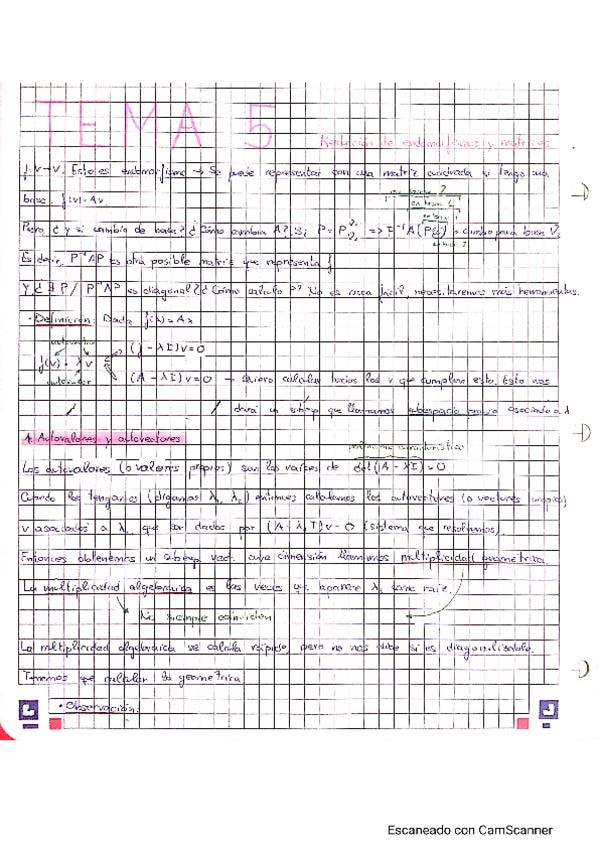 TEMA 5
Reducción de endomorfismos y matrices
f: V→V. Esto es endomorfismo → Se puede representar con una matriz cuadrada si tengo una
base. f(v) = Av
Pero, ¿y si cambio de base? ¿Cómo cambia A? Si P = P => P⁻¹A(P) cambio para base
Es decir, P⁻¹AP es otra posible matriz que representa f
Y ¿∃ P / P⁻¹AP es diagonal? ¿Cómo calculo P? No es nada fácil, necesitaremos más herramientas.
· Definición: Dada f(x) = Ax
autovector
f(v) = λv
autovalor
(f - λI)v = 0
(A - λI)v = 0 → quiero calcular todos los v que cumplan esto. Esto nos
dará un subesp que llamamos subespacio propio asociado a λ
1. Autovalores y autovectores
polinomio característico
Los autovalores (o valores propios) son las raíces de det(A - λI) = 0
Cuando los tengamos (digamos λ₁, λ₂) entonces calculamos los autovectores (o vectores propios)
v asociados a λ, que son dados por (A - λ, I)v = 0 (sistema que resolvemos).
Entonces obtenemos un subesp vect. cuya dimensión llamamos multiplicidad geométrica.
La multiplicidad algebraica es las veces que aparece λ, como raíz.
No siempre coinciden
La multiplicidad algebraica se calcula rápido, pero no nos dice si es diagonalizable.
Tenemos que calcular la geométrica
· Observación:
Escaneado con CamScanner